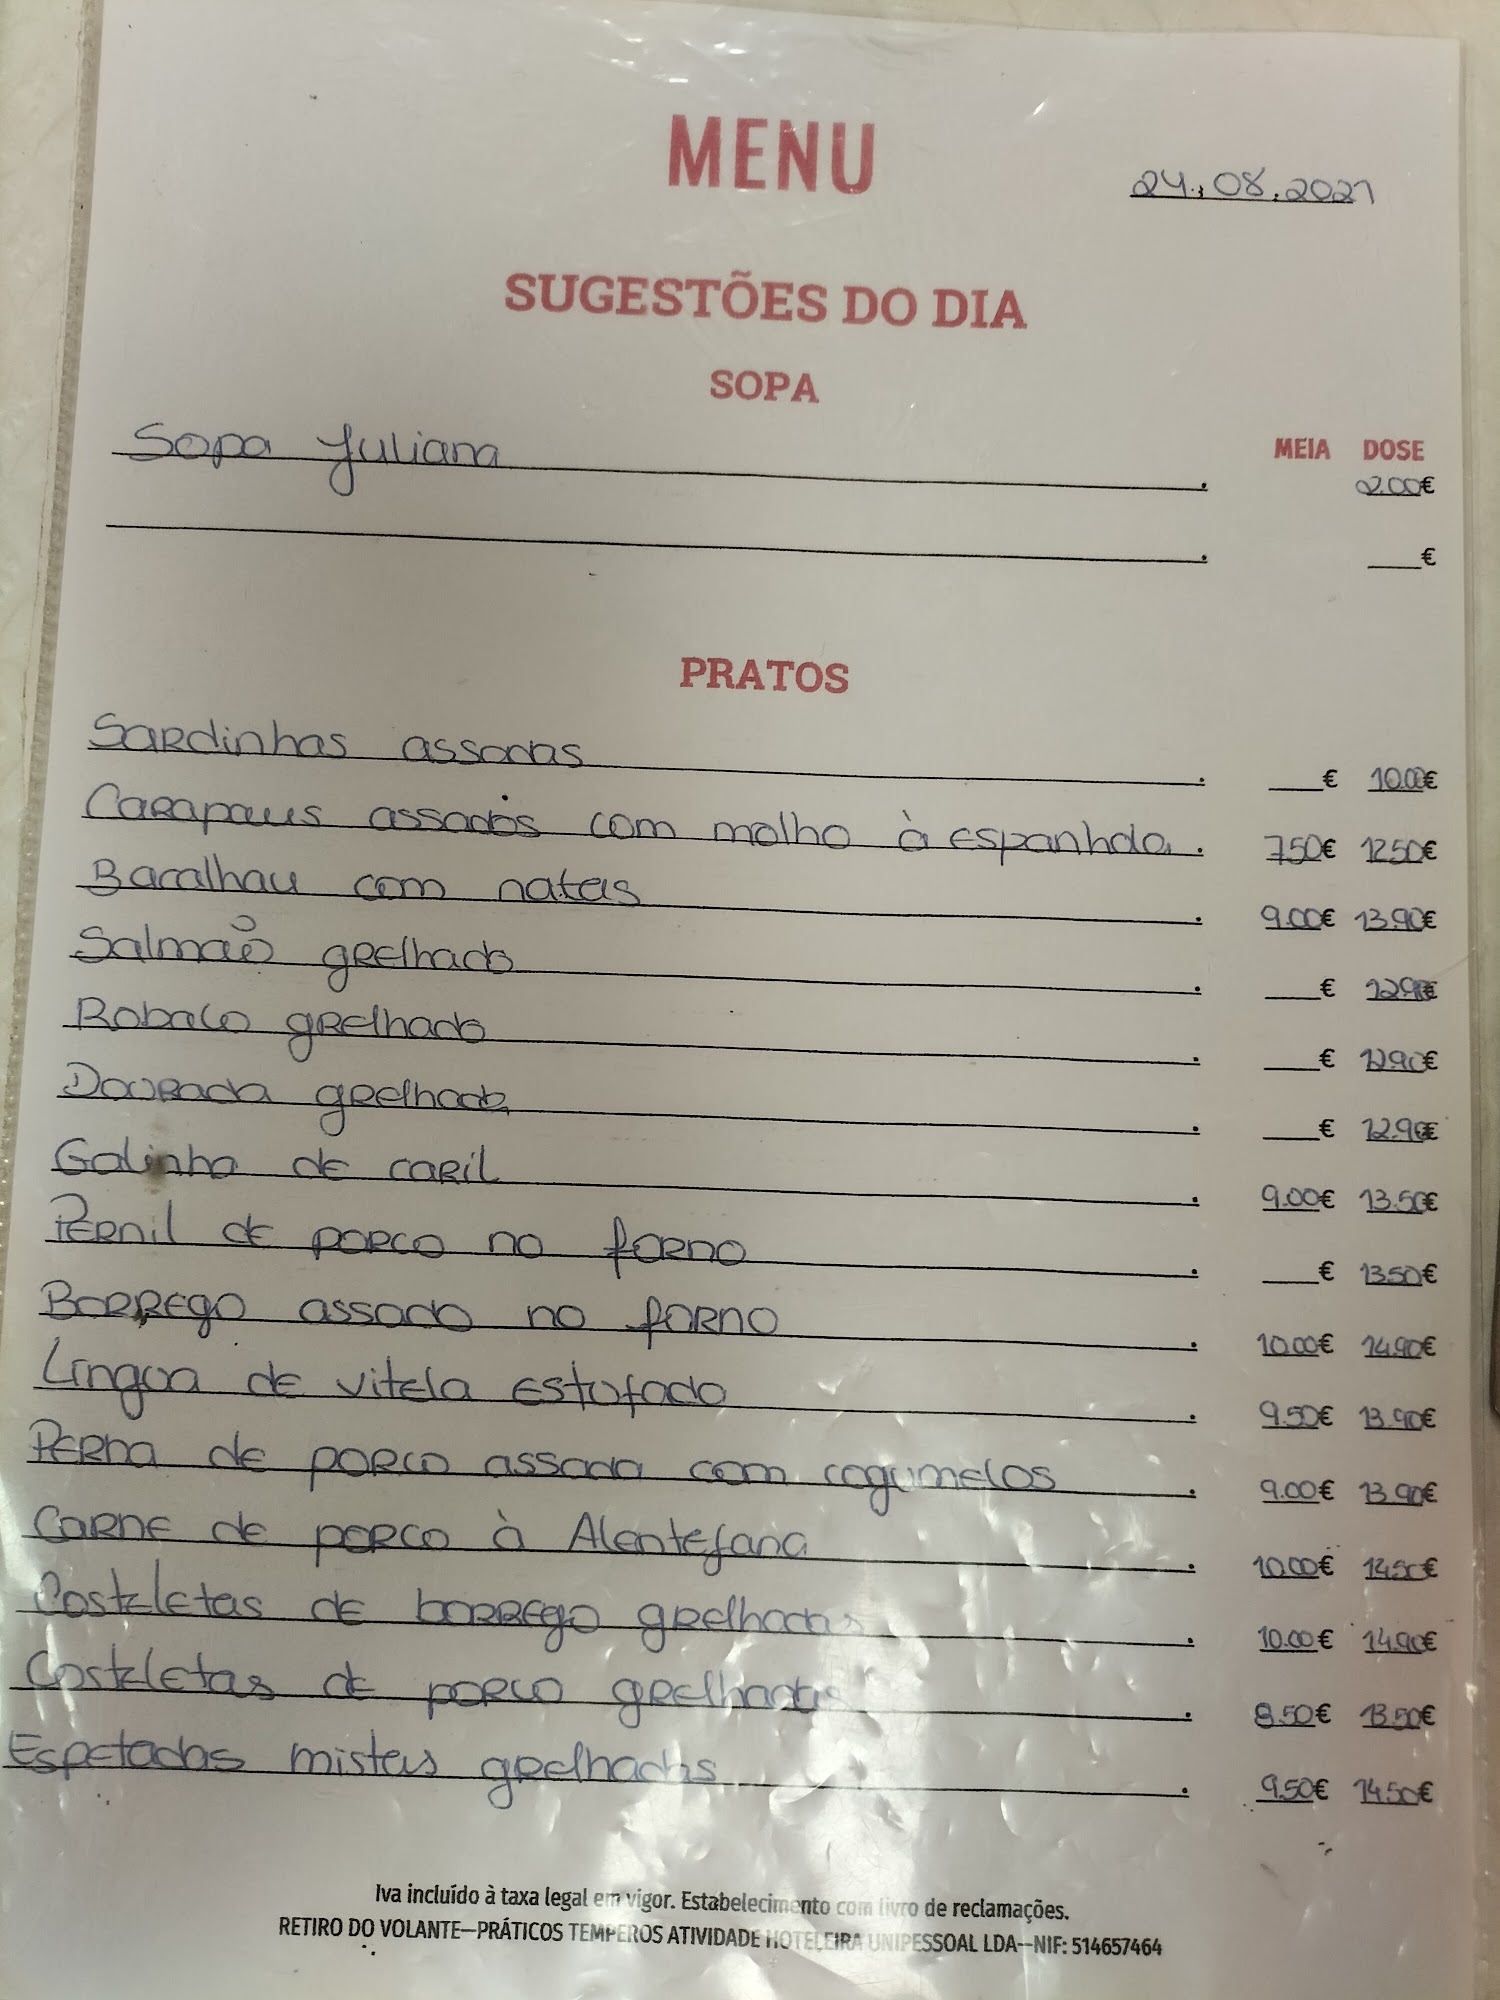 MENU
24.08.2021
SUGESTÕES DO DIA
SOPA
MEIA DOSE
Sopa Juliana . 2.00€
. ___€
PRATOS
Sardinhas assadas . ___€ 10.00€
Carapaus assados com molho à espanhola . 7.50€ 12.50€
Bacalhau com natas . 9.00€ 13.90€
Salmão grelhado . ___€ 12.90€
Robalo grelhado . ___€ 12.90€
Dourada grelhada . ___€ 12.90€
Galinha de caril . 9.00€ 13.50€
Pernil de porco no forno . ___€ 13.50€
Borrego assado no forno . 10.00€ 14.90€
Lingua de vitela estufada . 9.50€ 13.90€
Perna de porco assada com cogumelos . 9.00€ 13.90€
Carne de porco à Alentejana . 10.00€ 14.50€
Costeletas de borrego grelhadas . 10.00€ 14.90€
Costeletas de porco grelhadas . 8.50€ 13.50€
Espetadas mistas grelhadas . 9.50€ 14.50€
Iva incluído à taxa legal em vigor. Estabelecimento com livro de reclamações.
RETIRO DO VOLANTE—PRÁTICOS TEMPEROS ATIVIDADE HOTELEIRA UNIPESSOAL LDA—NIF: 514657464